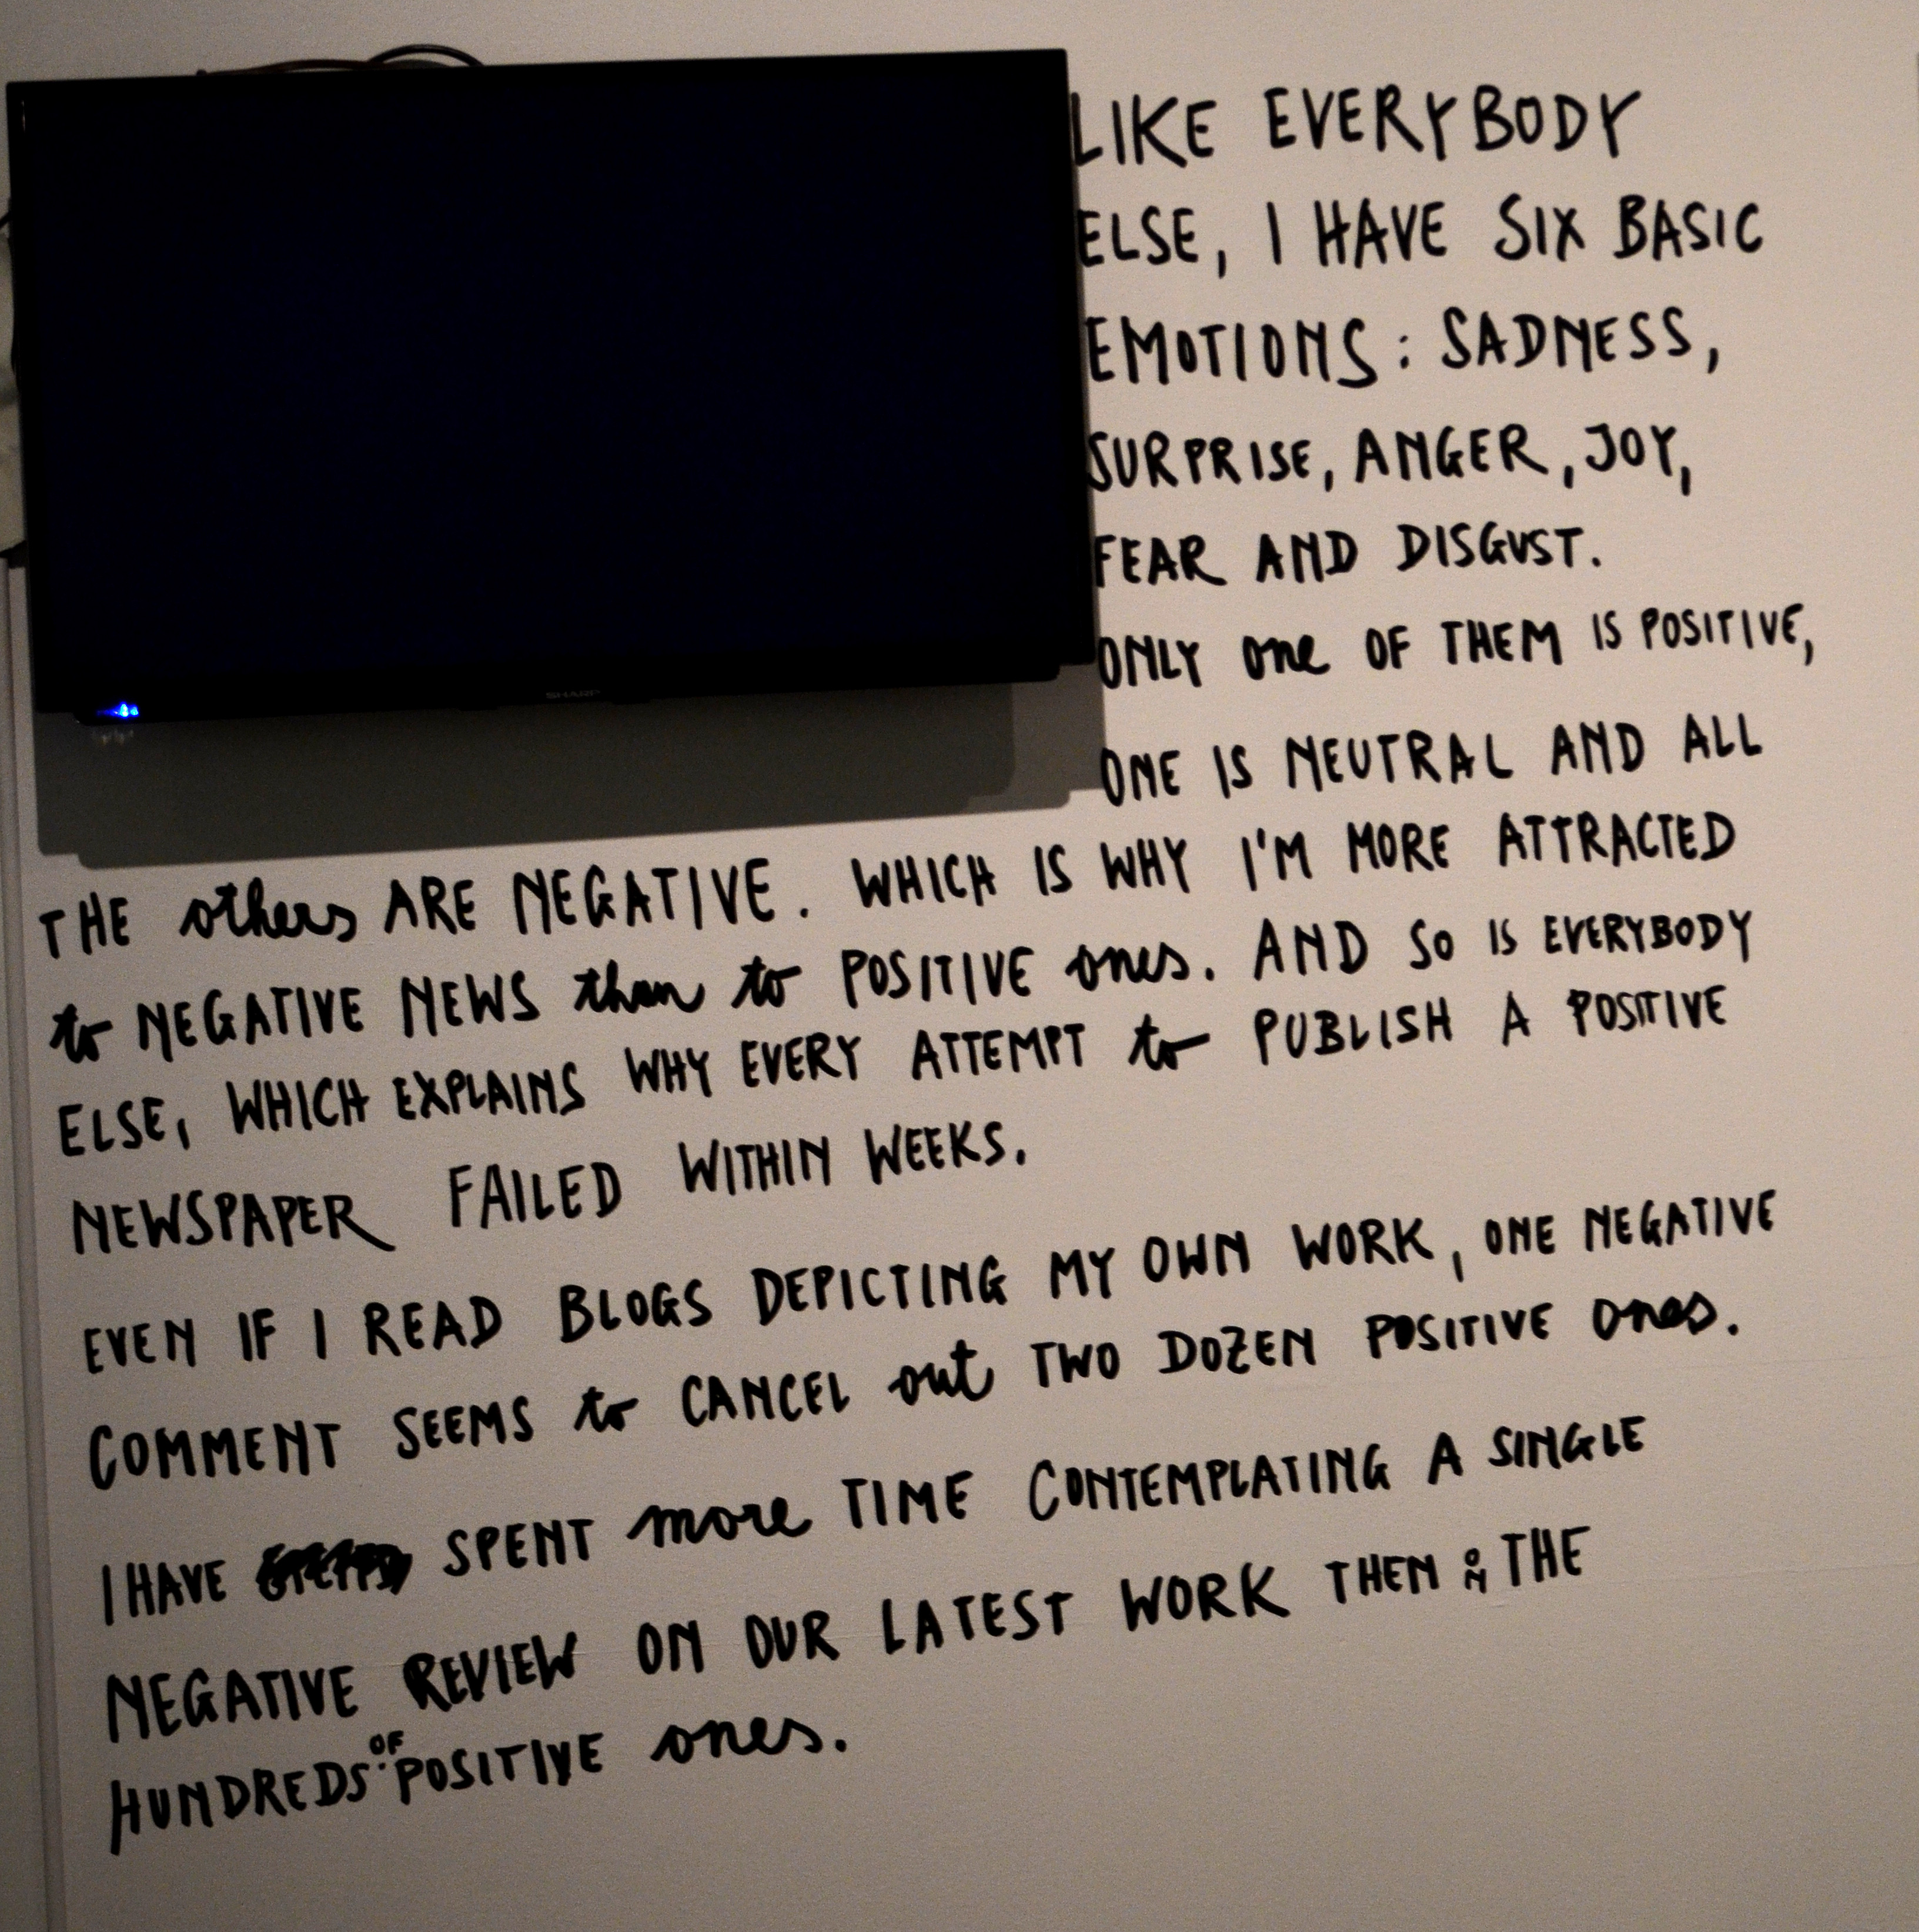 LIKE EVERYBODY
ELSE, I HAVE SIX BASIC
EMOTIONS: SADNESS,
SURPRISE, ANGER, JOY,
FEAR AND DISGUST.
ONLY one OF THEM IS POSITIVE,
ONE IS NEUTRAL AND ALL
SHARP
THE others ARE NEGATIVE. WHICH IS WHY I'M MORE ATTRACTED
to NEGATIVE NEWS than to POSITIVE ones. AND SO IS EVERYBODY
ELSE, WHICH EXPLAINS WHY EVERY ATTEMPT to PUBLISH A POSITIVE
NEWSPAPER FAILED WITHIN WEEKS.
EVEN IF I READ BLOGS DEPICTING MY OWN WORK, ONE NEGATIVE
COMMENT SEEMS to CANCEL out TWO DOZEN POSITIVE ones.
I HAVE SPENT more TIME CONTEMPLATING A SINGLE
NEGATIVE REVIEW ON OUR LATEST WORK THEN ON THE
HUNDREDS OF POSITIVE ones.